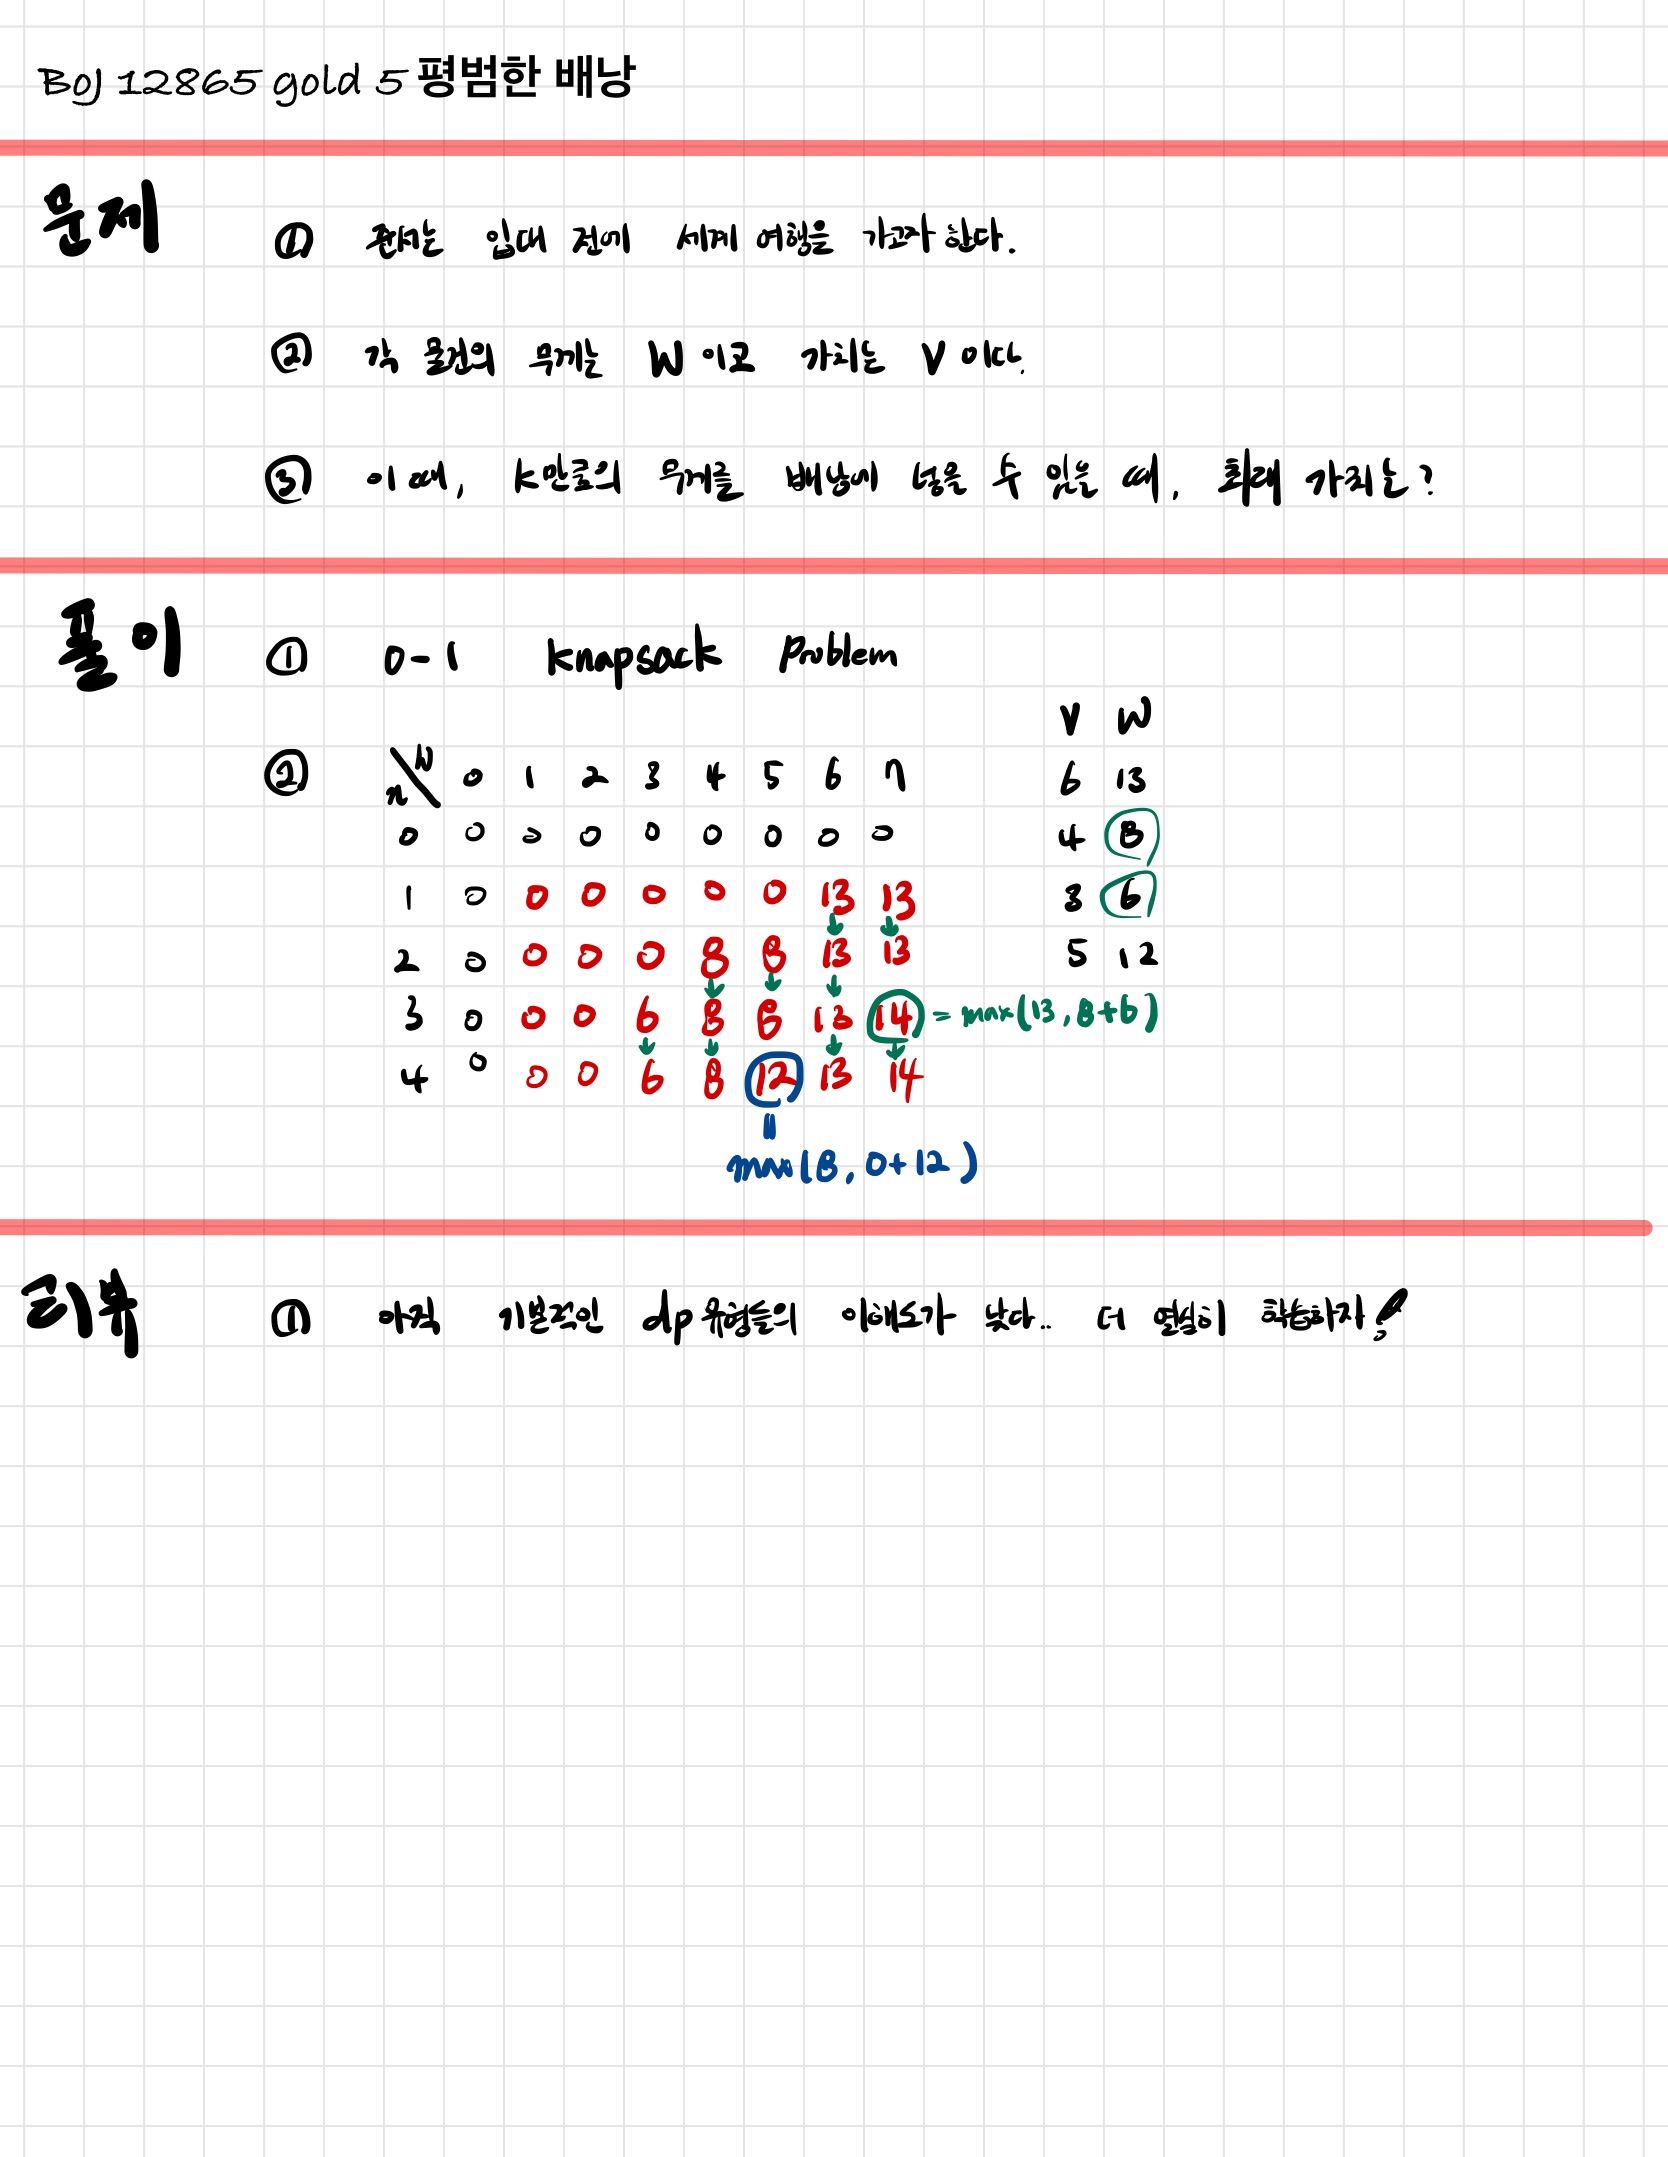 BOJ 12865 gold 5 평범한 배낭
문제
① 준서는 입대 전에 세계 여행을 가고자 한다.
② 각 물건의 무게는 W 이고 가치는 V 이다.
③ 이 때, K만큼의 무게를 배낭에 넣을 수 있을 때, 최대 가치는?
풀이
① 0-1 knapsack Problem
V W
② n\W 0 1 2 3 4 5 6 7 6 13
0 0 0 0 0 0 0 0 0 4 8
1 0 0 0 0 0 0 13 13 3 6
2 0 0 0 0 8 8 13 13 5 12
3 0 0 0 6 8 8 13 14 = max(13, 8+6)
4 0 0 0 6 8 12 13 14
=
max(8, 0+12)
리뷰
① 아직 기본적인 dp유형들의 이해도가 낮다.. 더 열심히 학습하자!